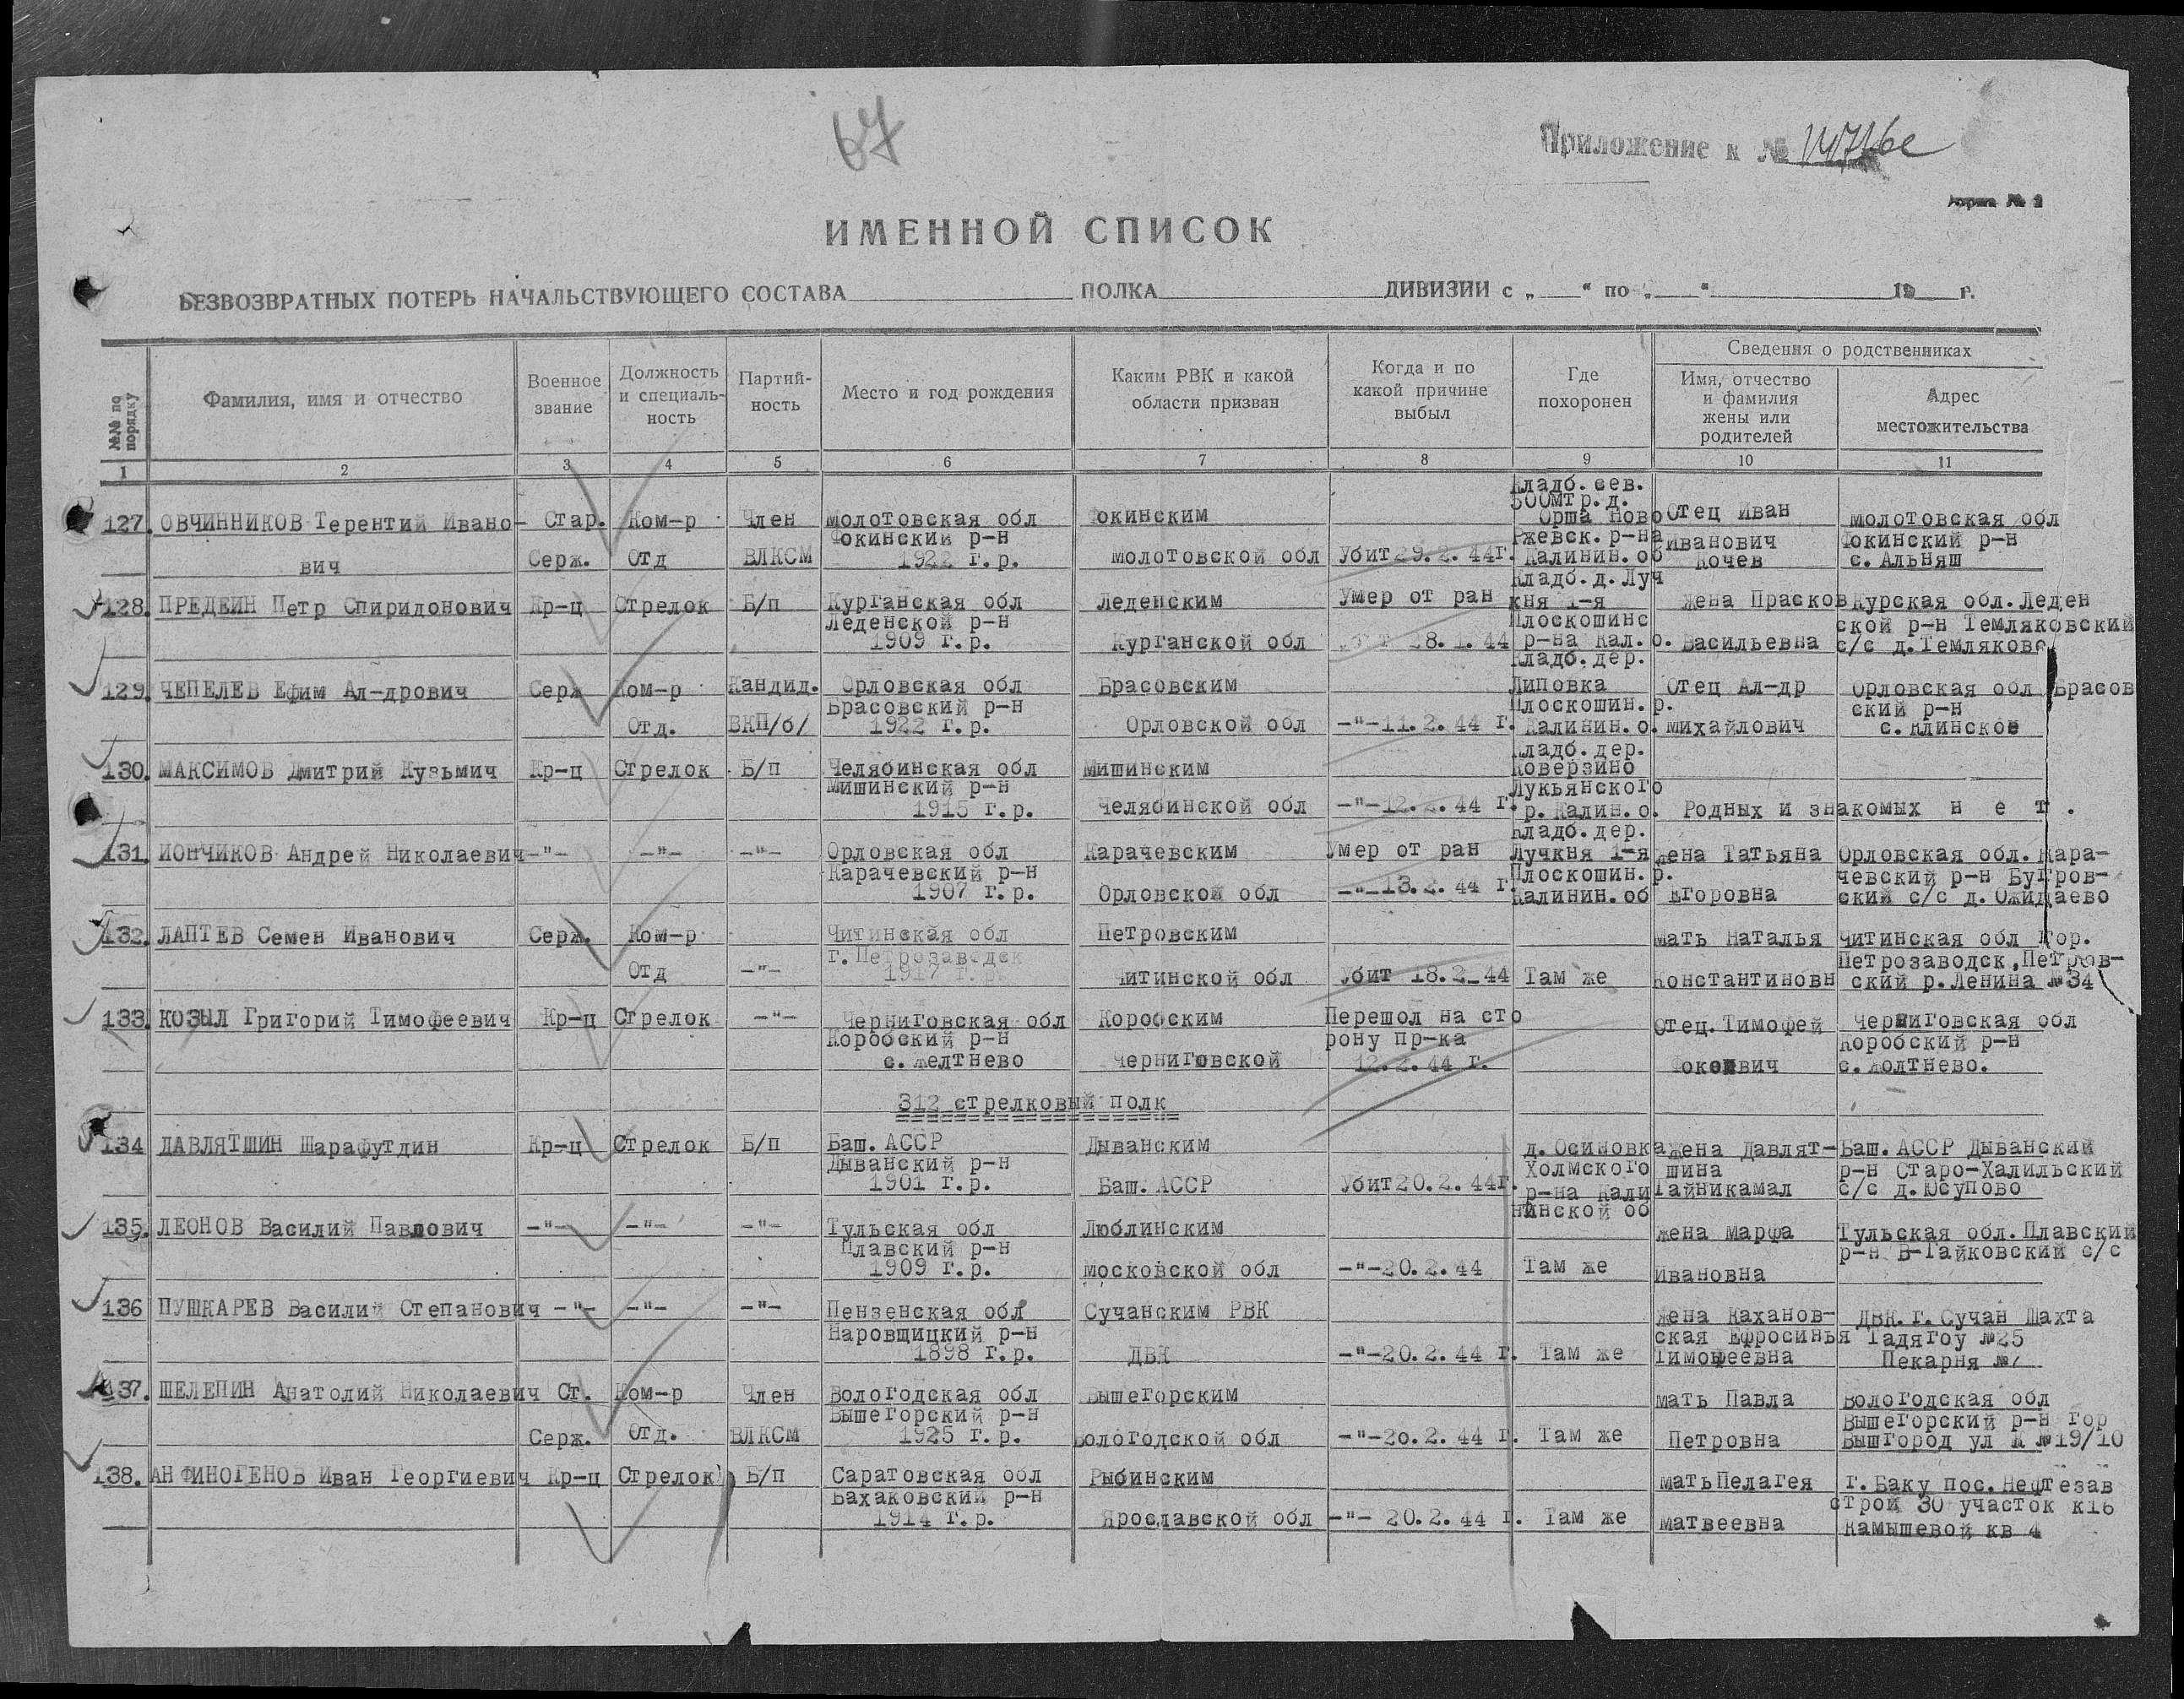 67
Приложение к №
ИМЕННОЙ СПИСОК
БЕЗВОЗВРАТНЫХ ПОТЕРЬ НАЧАЛЬСТВУЮЩЕГО СОСТАВА ПОЛКА ДИВИЗИИ с „ “ по „ “ 19 г.
№№ по порядку
Фамилия, имя и отчество
Военное звание
Должность и специаль-ность
Партий-ность
Место и год рождения
Каким РВК и какой области призван
Когда и по какой причине выбыл
Где похоронен
Сведения о родственниках
Имя, отчество и фамилия жены или родителей
Адрес местожительства
1 2 3 4 5 6 7 8 9 10 11
127. ОВЧИННИКОВ Терентий Ивано- Стар. Ком-р Член Молотовская обл Фокинским Кладб. сев. 500мтр.д. Орша Ново Отец Иван Молотовская обл
вич Серж. Отд ВЛКСМ Фокинский р-н 1922 г.р. Молотовской обл Убит 29.2.44г. Ржевск. р-на Калинин. об Иванович Кочев Фокинский р-н с. Альняш
128. ПРЕДЕИН Петр Спиридонович Кр-ц Стрелок Б/п Курганская обл Леденским Умер от ран Кладб. д. Луч кня 1-я Жена Прасков Курская обл. Леден
Леденской р-н 1909 г.р. Курганской обл 28.1.44 Плоскошинс р-на Кал. о. Васильевна ской р-н Темляковский с/с д. Темляково
129. ЧЕПЕЛЕВ Ефим Ал-дрович Серж Ком-р Кандид. Орловская обл Брасовским Кладб. дер. Липовка Отец Ал-др Орловская обл Брасов
Отд. ВКП/б/ Брасовский р-н 1922 г.р. Орловской обл -"-11.2.44 г. Плоскошин. р. Калинин. о. Михайлович ский р-н с. Клинское
130. МАКСИМОВ Дмитрий Кузьмич Кр-ц Стрелок Б/п Челябинская обл Мишинским Кладб. дер. Коверзино
Мишинский р-н 1915 г.р. Челябинской обл -"-12.2.44 г. Лукьянского р. Калин. о. Родных и знакомых н е т .
131. ИОНЧИКОВ Андрей Николаевич -"- -"- -"- Орловская обл Карачевским Умер от ран Кладб. дер. Лучкня 1-я Жена Татьяна Орловская обл. Кара-
Карачевский р-н 1907 г.р. Орловской обл -"-13.2.44 г. Плоскошин. р. Калинин. об Егоровна чевский р-н Бугров- ский с/с д. Ожидаево
132. ЛАПТЕВ Семен Иванович Серж. Ком-р Читинская обл Петровским Мать Наталья Читинская обл Гор.
Отд -"- г. Петрозаводск 1917 г. Читинской обл Убит 18.2_44 Там же Константиновн Петрозаводск, Петров- ский р. Ленина №34
133. КОЗЫЛ Григорий Тимофеевич Кр-ц Стрелок -"- Черниговская обл Коробским Перешол на сто Отец. Тимофей Черниговская обл
Коробский р-н с. Желтнево Черниговской рону пр-ка 12.2.44 г. Коробский р-н с. Жолтнево.
312 стрелковый полк
134 ДАВЛЯТШИН Шарафутдин Кр-ц Стрелок Б/п Баш. АССР Дыванским д. Осиновка Жена Давлят- Баш. АССР Дыванский
Дыванский р-н 1901 г.р. Баш. АССР Убит 20.2.44г. Холмского р-на Кали нинской об шина Гайникамал р-н Старо-Халильский с/с д. Юсупово
135. ЛЕОНОВ Василий Павлович -"- -"- -"- Тульская обл Люблинским Жена Марфа Тульская обл. Плавский
Плавский р-н 1909 г.р. Московской обл -"-20.2.44 Там же Ивановна р-н В-Гайковский с/с
136 ПУШКАРЕВ Василий Степанович -"- -"- -"- Пензенская обл Сучанским РВК Жена Каханов- ДВК. г. Сучан Шахта
Наровщицкий р-н 1898 г.р. ДВК -"-20.2.44 г. Там же ская Ефросинья Тимофеевна Тадягоу №25 Пекарня №
137. ШЕЛЕПИН Анатолий Николаевич Ст. Ком-р Член Вологодская обл Вышегорским Мать Павла Вологодская обл
Серж. Отд. ВЛКСМ Вышегорский р-н 1925 г.р. Вологодской обл -"-20.2.44 г. Там же Петровна Вышегорский р-н гор Вышгород ул К №19/10
138. АНФИНОГЕНОВ Иван Георгиевич Кр-ц Стрелок Б/п Саратовская обл Рыбинским Мать Пелагея г. Баку пос. Нефтезав
Бахаковский р-н 1914 г.р. Ярославской обл -"- 20.2.44 г. Там же Матвеевна строй 30 участок к16 Камышевой кв 4